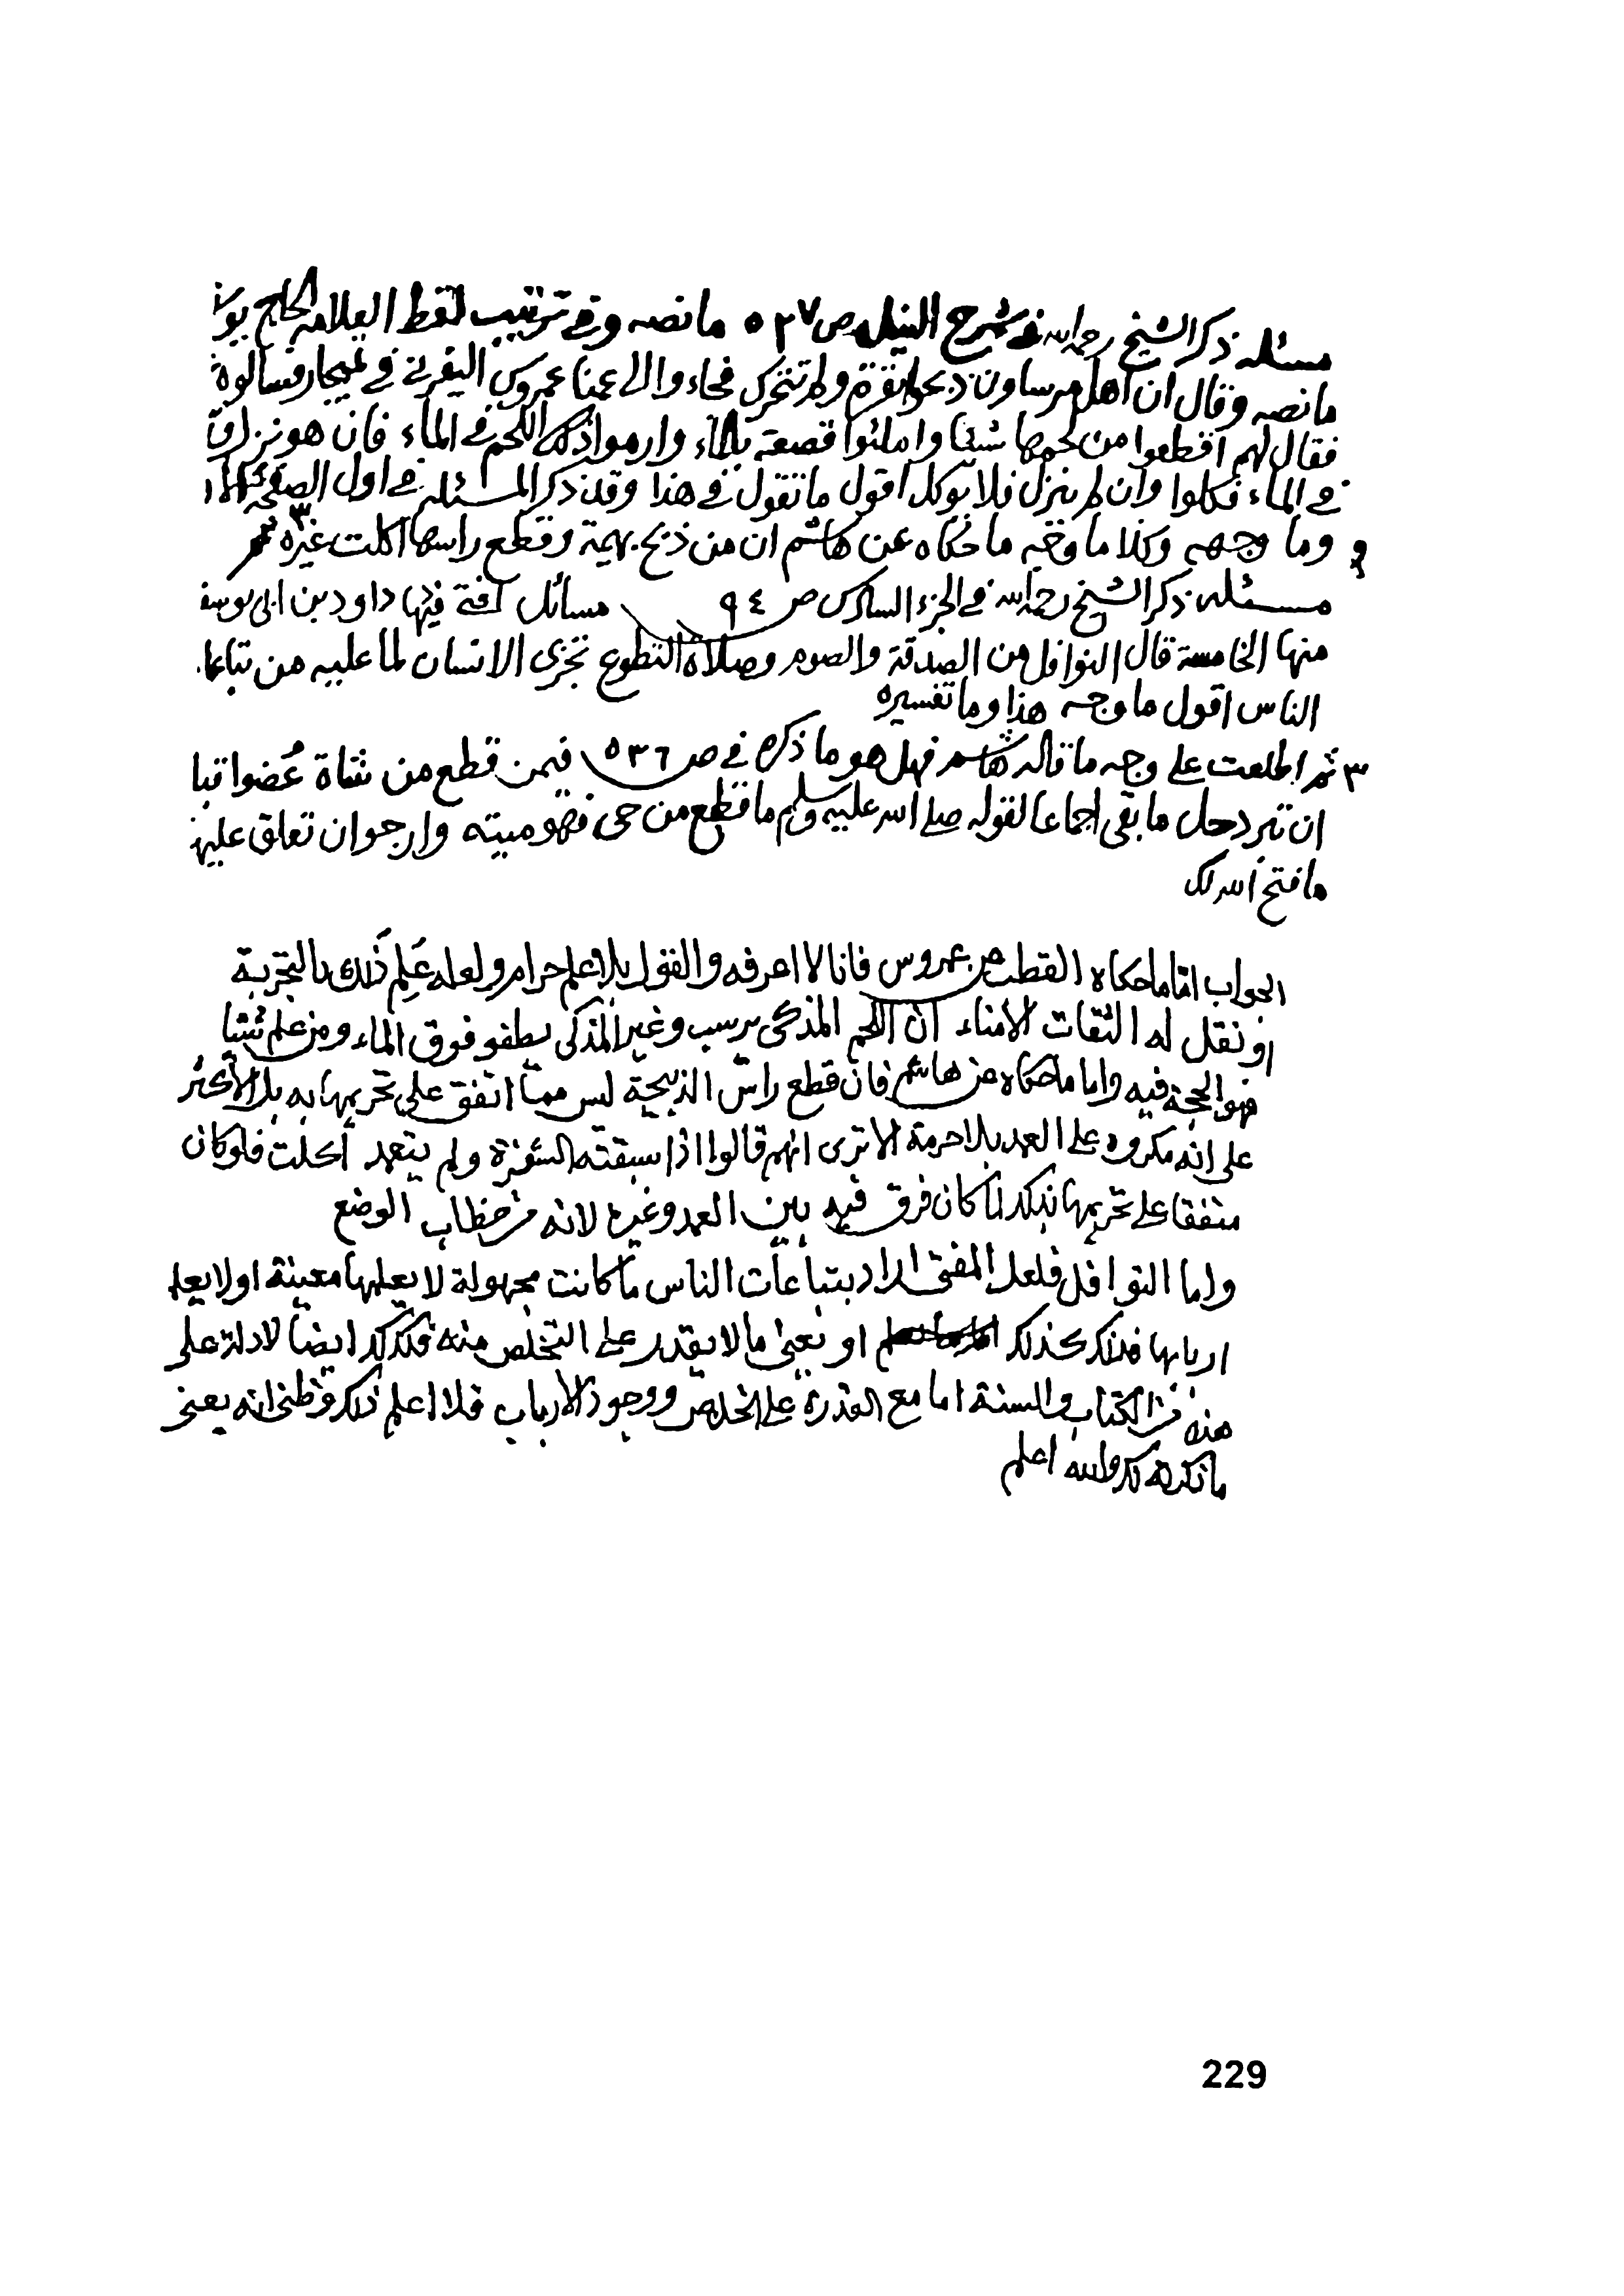 مسئلة ذكر الشيخ رحمه الله في شرح النيل ص ٥٢٧ ما نصه وفي ترتيب لقط العلامة الحاج يوسف
ما نصه وقال ان اهل مرساون ذبحوا بقرة ولم تتحرك فجاءوا الى عمنا عمروس اليفرني في فسالوه
فقال لهم اقطعوا من لحمها شيئا واملئوا قصعة بالماء وارموا ذلك اللحم في الماء فان هو نزل
في الماء فكلوا وان لم ينزل فلا يوكل اقول ما تقول في هذا وقد ذكر المسئلة في اول الصفحة
و وما وجهه وكذا ما وجه ما حكاه عن هاشم ان من ذبح بهيمة وقطع راسها اكلت غيره ٣
مسئلة ذكر الشيخ رحمه الله في الجزء السادس ص ٩٤ مسائل افتى فيها داود بن ابي يوسف
منها الخامسة قال النوافل من الصدقة والصوم وصلاة التطوع تجزي الانسان لما عليه من تباعات
الناس اقول ما وجه هذا وما تفسيره
٣ ثم اطلعت على وجه ما قاله هاشم فهل هو ما ذكره في ص ٥٣٦ فيمن قطع من شاة عُضوا قبل
ان تبرد حل ما بقى اجماعا لقوله صلى الله عليه وسلم ما قطع من حي فهو ميتة وارجو ان تعلق عليه
ما فتح الله لك
الجواب امّا ما حكاه القطب عن عمروس فانا لا اعرفه والقول بلا علم حرام ولعله عَلِم ذلك بالتجربة
او نقل له الثقات الامناء ان اللحم المذكى يرسب وغير المذكى يطفو فوق الماء ومن علم شيئا
فهو الحجة فيه واما ما حكاه عن هاشم فان قطع راس الذبيحة ليس مما اتفق على تحريمها به بل الأكثر
على انه مكروه على العمد بلا حرمة الا ترى انهم قالوا اذا سبقته الشفرة ولم يتعمد أكلت فلو كان
متفقا على تحريمها بذلك لما كان فرق فيه بين العمد وغيره لانه من خطاب الوضع
واما النوافل فلعل المفتي اراد بتباعات الناس ما كانت مجهولة لا يعلمها معينة او لا يعلم
اربابها فذلك كذلك او يعنى ما لا يقدر على التخلص منه فكذلك ايضا لادلة على
هذا من الكتاب والسنة اما مع القدرة على الخلاص ووجود الارباب فلا اعلم ذلك وظني انه يعنى
ما ذكرته لك والله اعلم
229